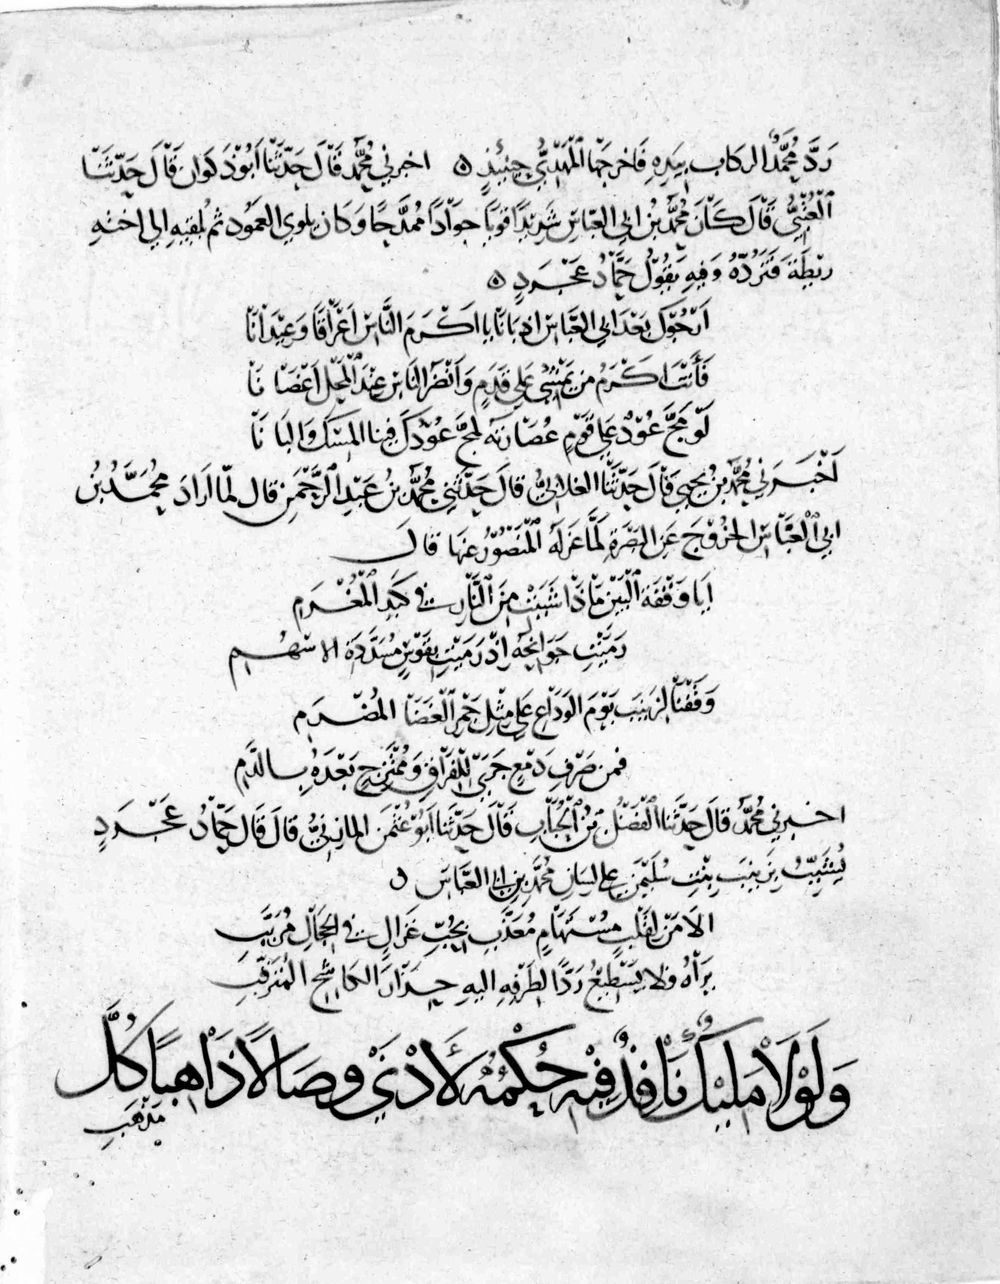 رَدَّ مُحَمَّدُ الركاب بِيَدِهِ فَاخرجها اَلْمَهْدِيُّ حِينَئِذٍ ه اخبرني مُحَمَّد قَالَ حَدَّثَنَا اَبُوْ ذَكوان قَالَ حَدَّثَنَا
اَلْعُتْبِيُّ قَالَ كَانَ مُحَمَّدُ بْنُ ابي العبَّاسِ شَدِيْدًا قويًّا جوَادًا مُمَدَّحًا وَكان يلوي العَمُود ثم يُلقيهِ الي اخته
رَيْطَة فَتَرُدُّهُ وَفيهِ يَقُوْلُ حَمَّادُ عَجْرَدٍ ه
اَرْجُوْكَ بَعْدَ ابي العَبَّاسِ اذ بَانَا يا اَكْرَمَ النَّاسِ اَعْرَاقًا وَعِيْدَانَا
فَأَنْتَ اَكْرَمُ من يَمْشِي عَلي قَدَمٍ وَاَنْضَرُ النَّاسِ عِنْدَ اَلْمَحْلِ اَغْصَانَا
لَوْ مَجَّ عُوْدٌ عَلي قَوْمٍ عُصَارَتَهُ لَمَجَّ عُوْدُكَ فِينا المِسْكَ وَالبَانَا
اَخْبَرَني مُحَمَّدُ بْنُ يَحيي قَالَ حَدَّثَنَا الغلابيُّ قَالَ حَدَّثَنِي مُحَمَّدُ بْنُ عَبْدِ الرَّحْمٰنِ قال لمّا اَرَادَ مُحَمَّدُ بْنُ
ابي اَلْعَبَّاسِ الخُرُوْجَ عَنِ البَصْرَةِ لَمَّا عَزَلَهُ اَلْمَنْصُوْرُ عَنهَا قَالَ
ايَا وَقْفَةَ اَلْبَيْنِ مَاذَا شَبَبْتِ مِنَ اَلنَّارِ فِي كَبِدِ اَلْمُغْرَمِ
رَمَيْتِ جَوَانِحَهُ اِذْ رَمَيْتِ بِقَوْسٍ مُسَدَّدَةِ الاسْهُمِ
وَقَفْنَا لِزَيْنَبَ يَوْمَ الوَدَاعِ عَلي مِثْلِ جَمْرِ اَلْغَضَا المُضْرَمِ
فمن صَرْفِ دَمْعٍ جَرَي لِلْفِرَاقِ وَمُمْتَزِجٍ بَعْدَهُ بِالدَّمِ
اخبرني مُحَمَّد قَالَ حَدَّثَنَا اَلْفَضْلُ بْنُ اَلْحُبَابِ قَالَ حَدَّثَنا اَبُوْ عُثْمٰنَ المازِنيُّ قَالَ قَالَ حَمَّادُ عَجْرَدٍ
يُشَبِّبُ بِزَيْنَبَ بِنْتِ سُلَيْمٰنَ عَلي لسَانِ مُحَمَّدِ بْنِ ابي العَبَّاسِ ه
الَا مَنْ لِقَلْبٍ مُسْتَهَامٍ مُعَذَّبِ بِحُبِّ غَزَالٍ فِي الحِجَالِ مُرَبَّبِ
يَرَاهُ فَلا يَسْطِيْعُ رَدًّا لِطَرْفِهِ اليهِ حِذَارَ الكَاشِحِ المُتَرَقِّبِ
وَلَوْلَا مَلِيْكٌ نَافِذٌ فِيْهِ حُكْمُهُ لَأَدْنَي وِصَالًا ذَاهِبًا كُلَّ
مَذْهَبِ